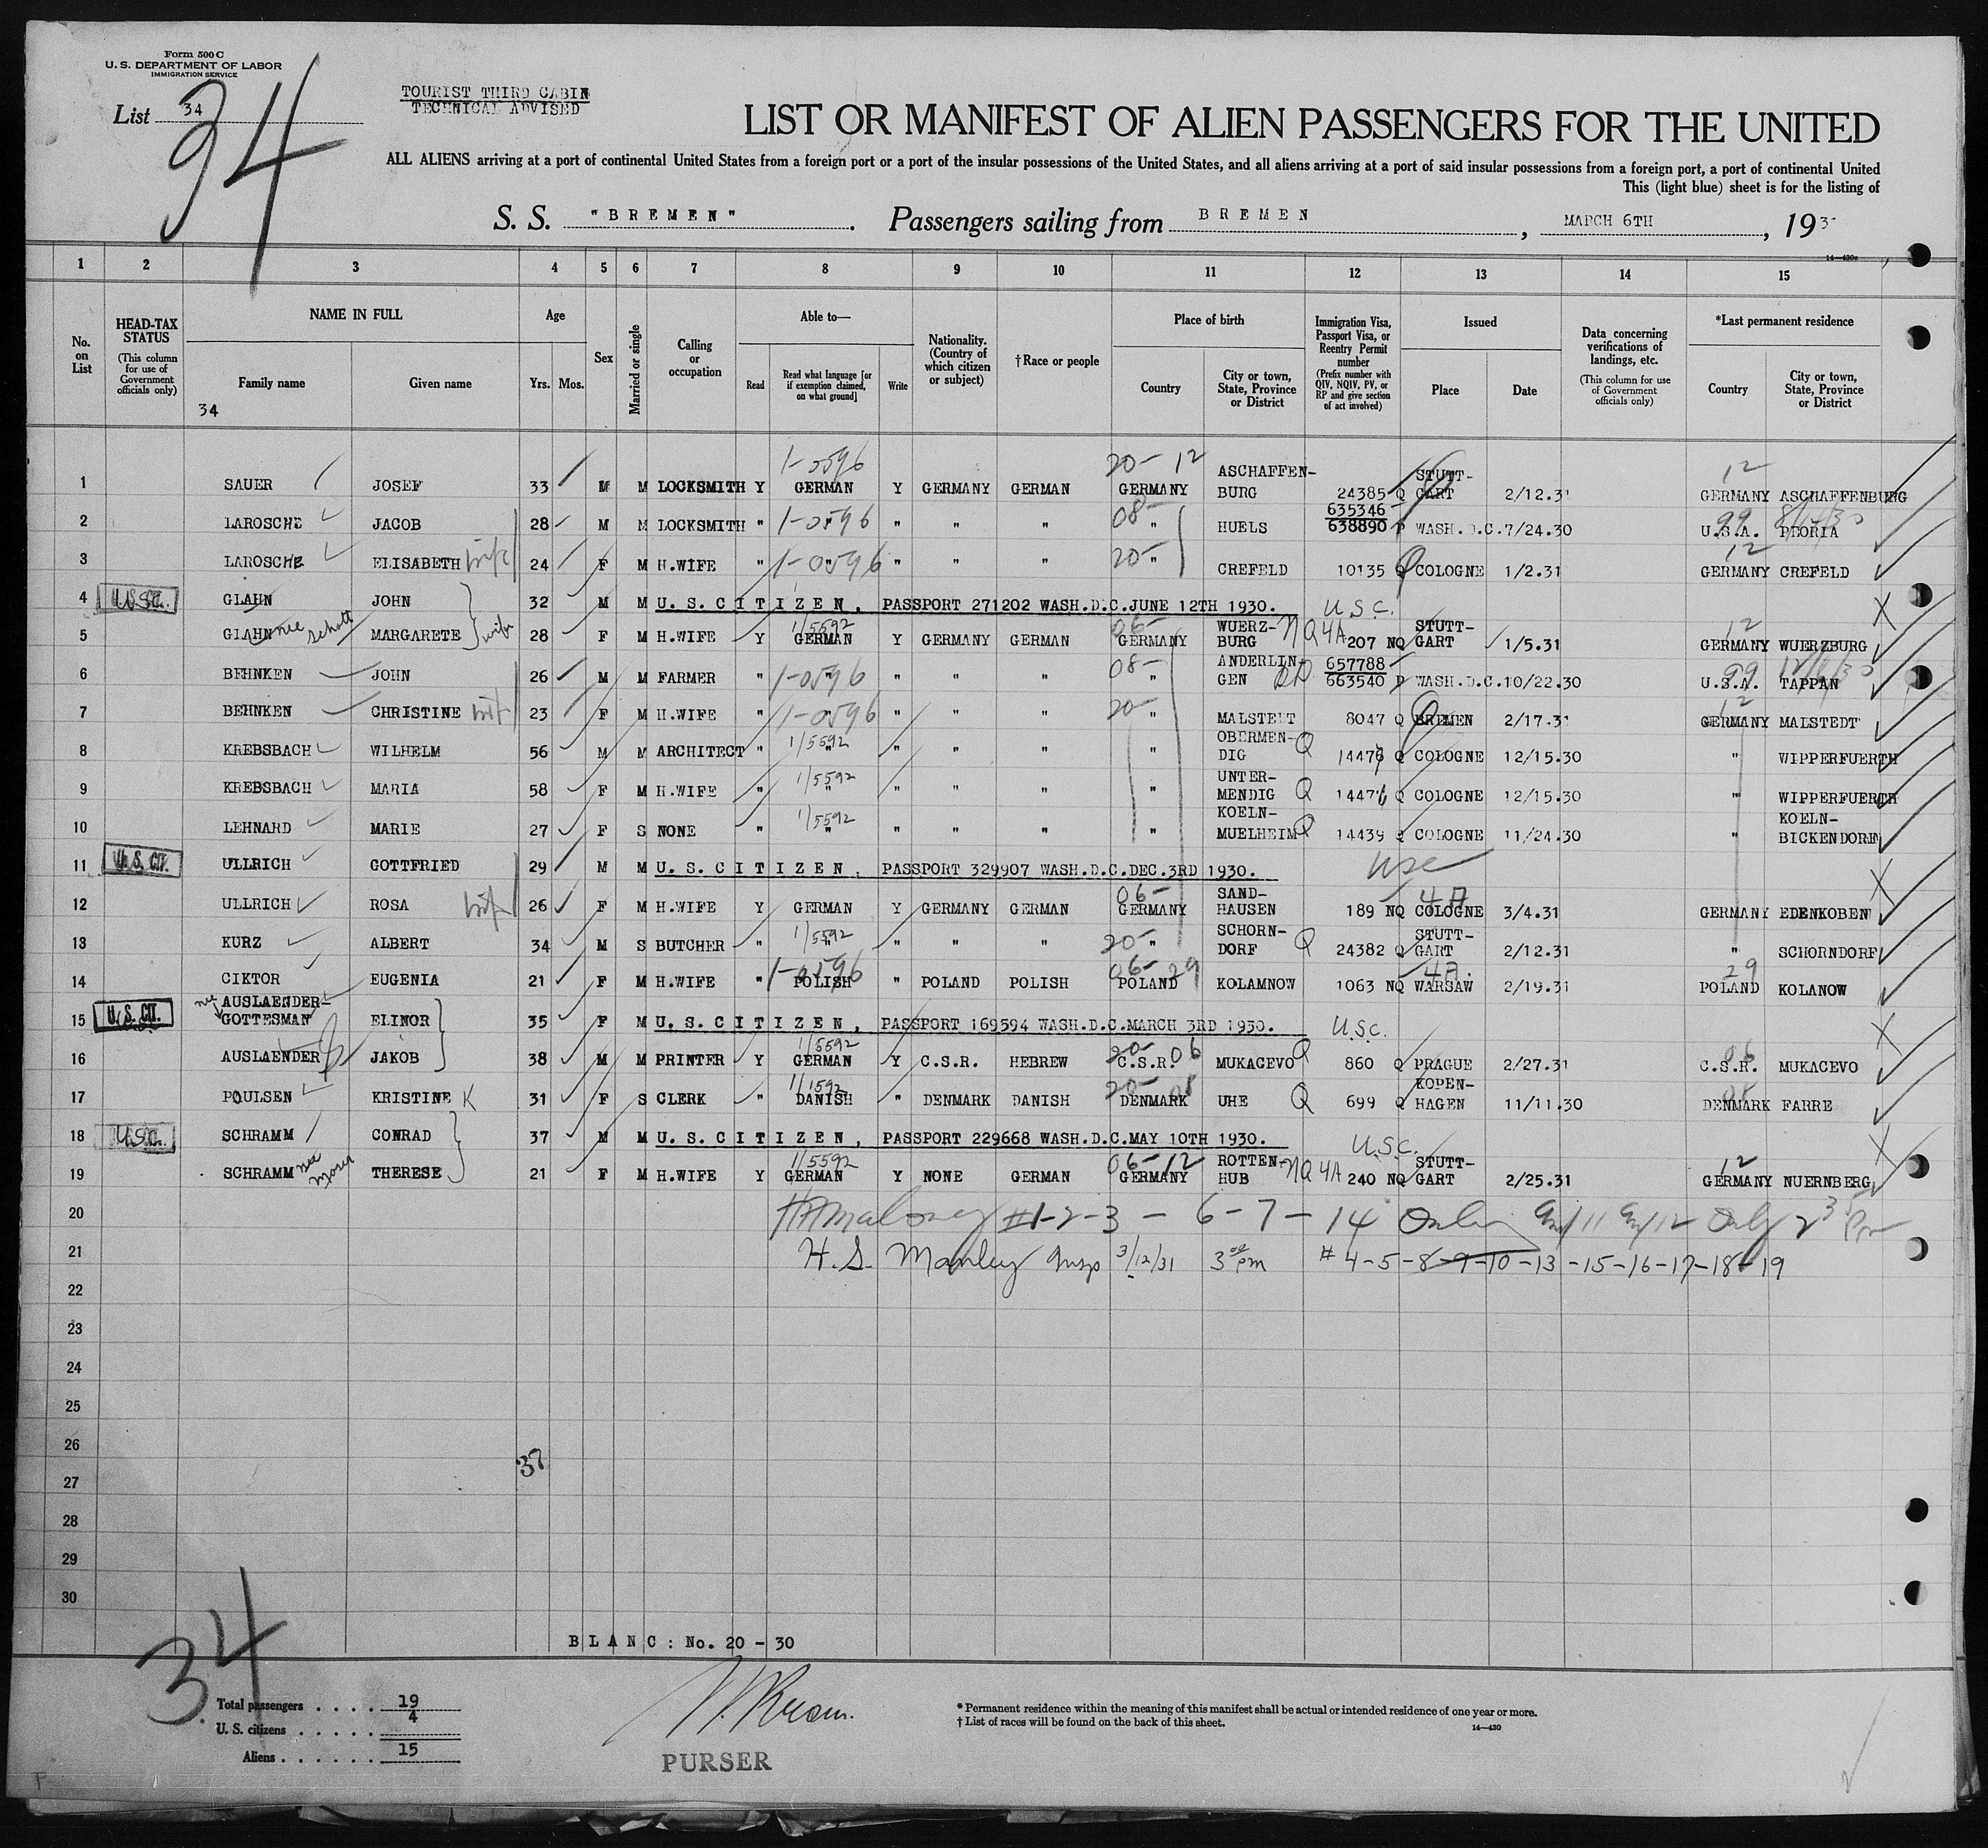 Form 500 C
U. S. DEPARTMENT OF LABOR
IMMIGRATION SERVICE
List 34
34
TOURIST THIRD CABIN
TECHNICAL ADVISED
LIST OR MANIFEST OF ALIEN PASSENGERS FOR THE UNITED
ALL ALIENS arriving at a port of continental United States from a foreign port or a port of the insular possessions of the United States, and all aliens arriving at a port of said insular possessions from a foreign port, a port of continental United
This (light blue) sheet is for the listing of
S. S. "BREMEN". Passengers sailing from BREMEN, MARCH 6TH, 193
14—430c
1 2 3 4 5 6 7 8 9 10 11 12 13 14 15
No. on List
HEAD-TAX STATUS (This column for use of Government officials only)
NAME IN FULL
Family name
Given name
34
Age
Yrs. Mos.
Sex
Married or single
Calling or occupation
Able to—
Read
Read what language [or if exemption claimed, on what ground]
Write
Nationality. (Country of which citizen or subject)
† Race or people
Place of birth
Country
City or town, State, Province or District
Immigration Visa, Passport Visa, or Reentry Permit number (Prefix number with QIV, NQIV, PV, or RP and give section of act involved)
Issued
Place
Date
Data concerning verifications of landings, etc. (This column for use of Government officials only)
*Last permanent residence
Country
City or town, State, Province or District
1 SAUER JOSEF 33 M M LOCKSMITH Y 1-0596 GERMAN Y GERMANY GERMAN 20- 12 GERMANY ASCHAFFEN-BURG 24385 Q STUTT-GART 2/12.31 12 GERMANY ASCHAFFENBURG
2 LAROSCHE JACOB 28 M M LOCKSMITH " 1-0596 " " " 08- " HUELS 635346 638890 P WASH.D.C. 7/24.30 99 U.S.A. PEORIA
3 LAROSCHE ELISABETH wife 24 F M H.WIFE " 1-0596 " " " 20- " CREFELD 10135 Q COLOGNE 1/2.31 12 GERMANY CREFELD
4 U.S.C. GLAHN JOHN 32 M M U. S. CITIZEN, PASSPORT 271202 WASH.D.C. JUNE 12TH 1930. U.S.C. X
5 GLAHN nee Schott MARGARETE wife 28 F M H.WIFE Y 1/5592 GERMAN Y GERMANY GERMAN 06- GERMANY WUERZ-BURG NQ 4A 207 NQ STUTT-GART 1/5.31 12 GERMANY WUERZBURG
6 BEHNKEN JOHN 26 M M FARMER " 1-0596 " " " 08- " ANDERLIN-GEN 657788 663540 P WASH.D.C. 10/22.30 99 U.S.A. TAPPAN
7 BEHNKEN CHRISTINE wife 23 F M H.WIFE " 1-0596 " " " 20- " MALSTEDT 8047 Q BREMEN 2/17.31 12 GERMANY MALSTEDT
8 KREBSBACH WILHELM 56 M M ARCHITECT " 1/5592 " " " " OBERMEN-DIG Q 14476 Q COLOGNE 12/15.30 " WIPPERFUERTH
9 KREBSBACH MARIA 58 F M H.WIFE " 1/5592 " " " " UNTER-MENDIG Q 14476 Q COLOGNE 12/15.30 " WIPPERFUERTH
10 LEHNARD MARIE 27 F S NONE " 1/5592 " " " " KOELN-MUELHEIM Q 14439 Q COLOGNE 11/24.30 " KOELN-BICKENDORF
11 U. S. CIT. ULLRICH GOTTFRIED 29 M M U. S. CITIZEN, PASSPORT 329907 WASH.D.C. DEC. 3RD 1930. USC X
12 ULLRICH ROSA wife 26 F M H.WIFE Y GERMAN Y GERMANY GERMAN 06- GERMANY SAND-HAUSEN 189 NQ 4A COLOGNE 3/4.31 GERMANY EDENKOBEN
13 KURZ ALBERT 34 M S BUTCHER " 1/5592 " " " 20- " SCHORN-DORF Q 24382 Q STUTT-GART 2/12.31 " SCHORNDORF
14 CIKTOR EUGENIA 21 F M H.WIFE " 1-0596 POLISH " POLAND POLISH 06-29 POLAND KOLAMNOW 1063 NQ 4A. WARSAW 2/19.31 29 POLAND KOLANOW
15 U. S. CIT. AUSLAENDER- nee GOTTESMAN ELINOR 35 F M U. S. CITIZEN, PASSPORT 169594 WASH.D.C. MARCH 3RD 1930. U.S.C. X
16 AUSLAENDER JAKOB 38 M M PRINTER Y 1/5592 GERMAN Y C.S.R. HEBREW 20-06 C.S.R. MUKACEVO Q 860 Q PRAGUE 2/27.31 06 C.S.R. MUKACEVO
17 POULSEN KRISTINE K 31 F S CLERK " 1/1592 DANISH " DENMARK DANISH 20-08 DENMARK UHE Q 699 Q KOPEN-HAGEN 11/11.30 08 DENMARK FARRE
18 U.S.C. SCHRAMM CONRAD 37 M M U. S. CITIZEN, PASSPORT 229668 WASH.D.C. MAY 10TH 1930. U.S.C. X
19 SCHRAMM nee Moser THERESE 21 F M H.WIFE Y 1/5592 GERMAN Y NONE GERMAN 06-12 GERMANY ROTTEN-HUB NQ 4A 240 NQ STUTT-GART 2/25.31 12 GERMANY NUERNBERG
20 Maloney #1-2-3 - 6-7-14 Only
21 H. S. Manley Insp 3/12/31 3 00 pm # 4-5-8-9-10-13-15-16-17-18-19
22
23
24
25
26
37
27
28
29
30
BLANC: No. 20 - 30
34
Total passengers . . . . 19
U. S. citizens . . . . . 4
Aliens . . . . . . 15
PURSER
* Permanent residence within the meaning of this manifest shall be actual or intended residence of one year or more.
† List of races will be found on the back of this sheet.
14—430